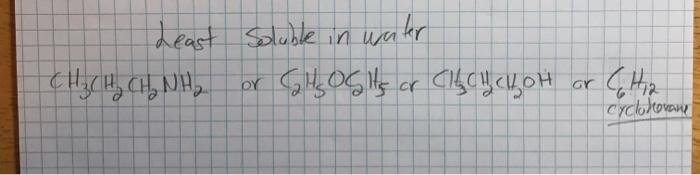 Least Soluble in water
CH₃CH₂CH₂NH₂ or C₂H₅OC₂H₅ or CH₃CH₂CH₂OH or C₆H₁₂
cyclohexane